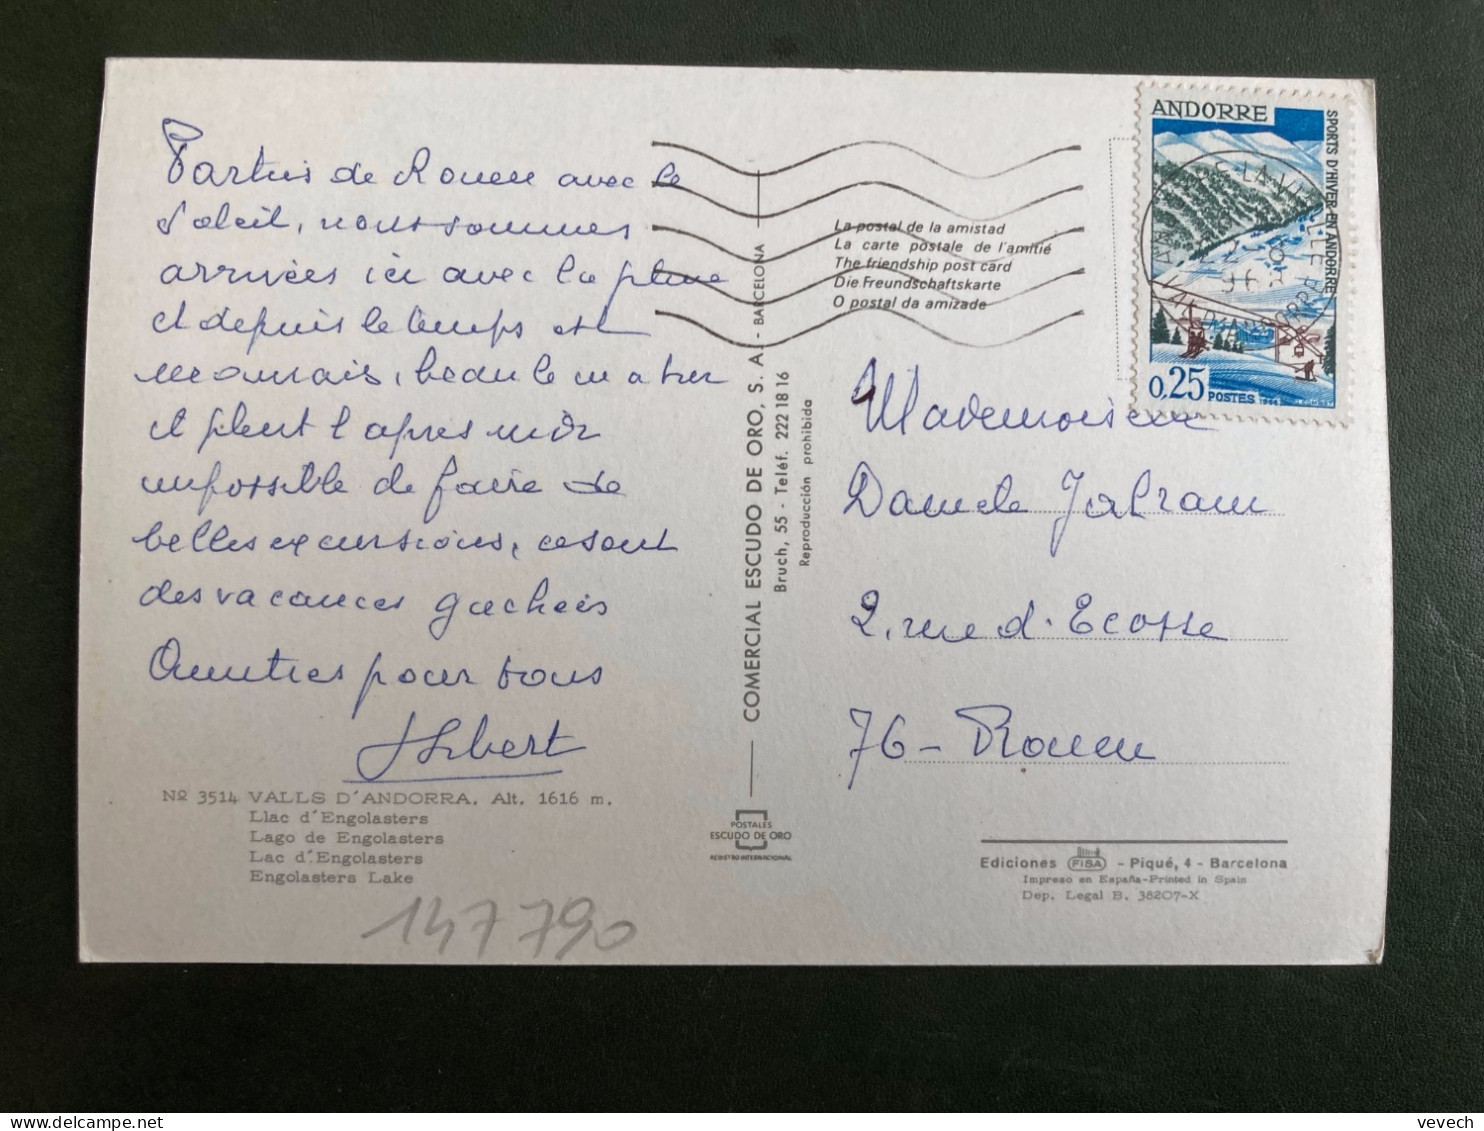 Parties de Rouen avec le
soleil, nous sommes
arrivées ici avec la pluie
et depuis le temps est
mauvais, beau le matin
et pleut l'après midi
impossible de faire de
belles excursions, ce sont
des vacances gachées
Amitiés pour tous
Nº 3514 VALLS D'ANDORRA. Alt. 1616 m.
Llac d'Engolasters
Lago de Engolasters
Lac d'Engolasters
Engolasters Lake
147 790
COMERCIAL ESCUDO DE ORO, S. A. - BARCELONA
Bruch, 55 - Teléf. 222 18 16
Reproducción prohibida
POSTALES
ESCUDO DE ORO
REGISTRO INTERNACIONAL
La postal de la amistad
La carte postale de l'amitié
The friendship post card
Die Freundschaftskarte
O postal da amizade
ANDORRE
SPORTS D'HIVER EN ANDORRE
0,25 POSTES
Mademoiselle
Daniele
2, rue d'Ecosse
76 - Rouen
Ediciones FISA - Piqué, 4 - Barcelona
Impreso en España-Printed in Spain
Dep. Legal B. 38207-X
vevech